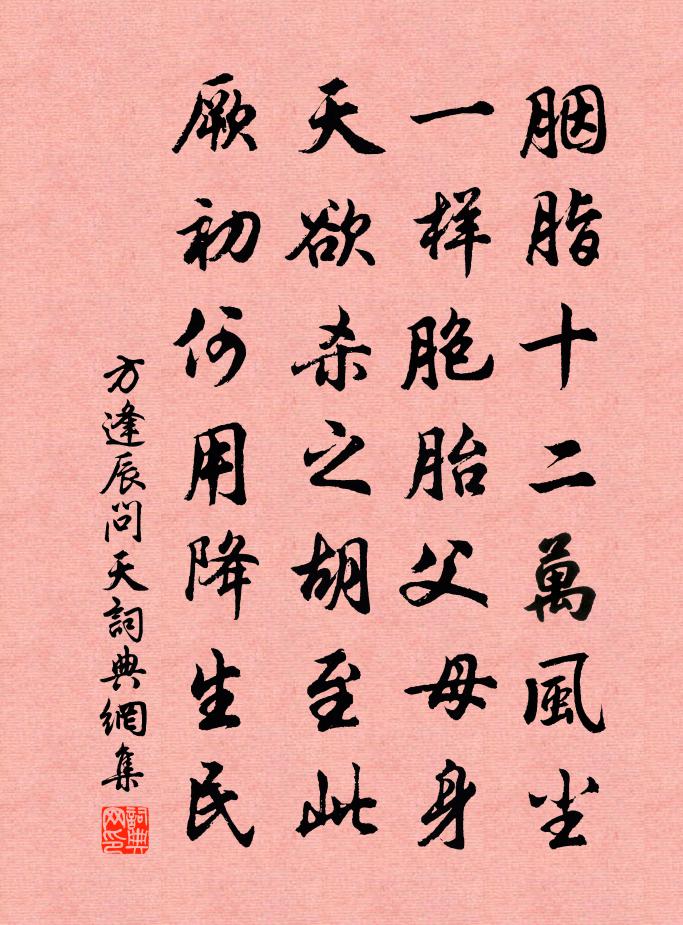 胭脂十二萬風尘
一样胞胎父母身
天欲杀之胡至此
厥初何用降生民
方逢辰问天詞典網集
詞典网印